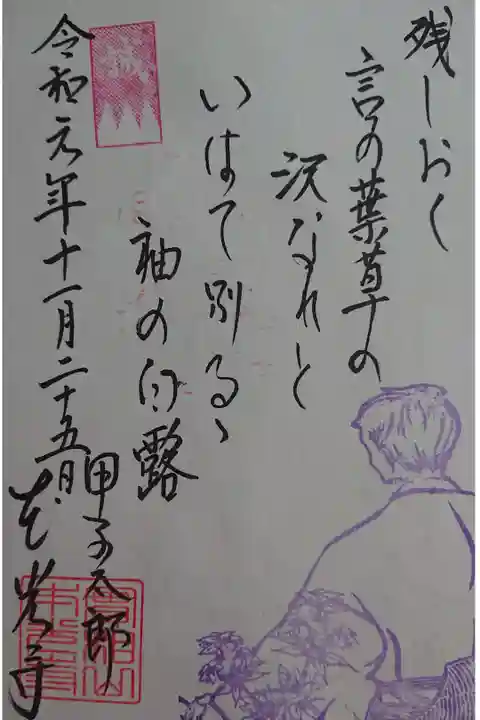 残しおく
言の葉草の
沢なれと
いはて別るゝ
袖の白露
甲子太郎
誠
令和元年十一月二十五日
本光寺